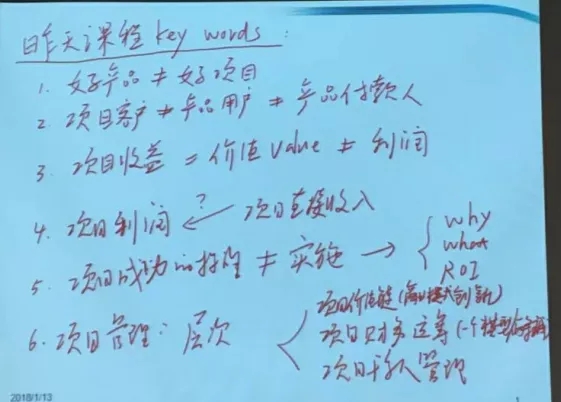 昨天课程 key words:
1. 好产品 ≠ 好项目
2. 项目客户 ≠ 产品用户 ≠ 产品付款人
3. 项目收益 = 价值 Value ≠ 利润
4. 项目利润 ←?— 项目直接收入
5. 项目成功的 ≠ 实施 → { why
what
ROI
6. 项目管理: 层次 < 项目价值链(商业模式创新)
项目财务运筹(一个模型
项目干系人管理
2018/1/13